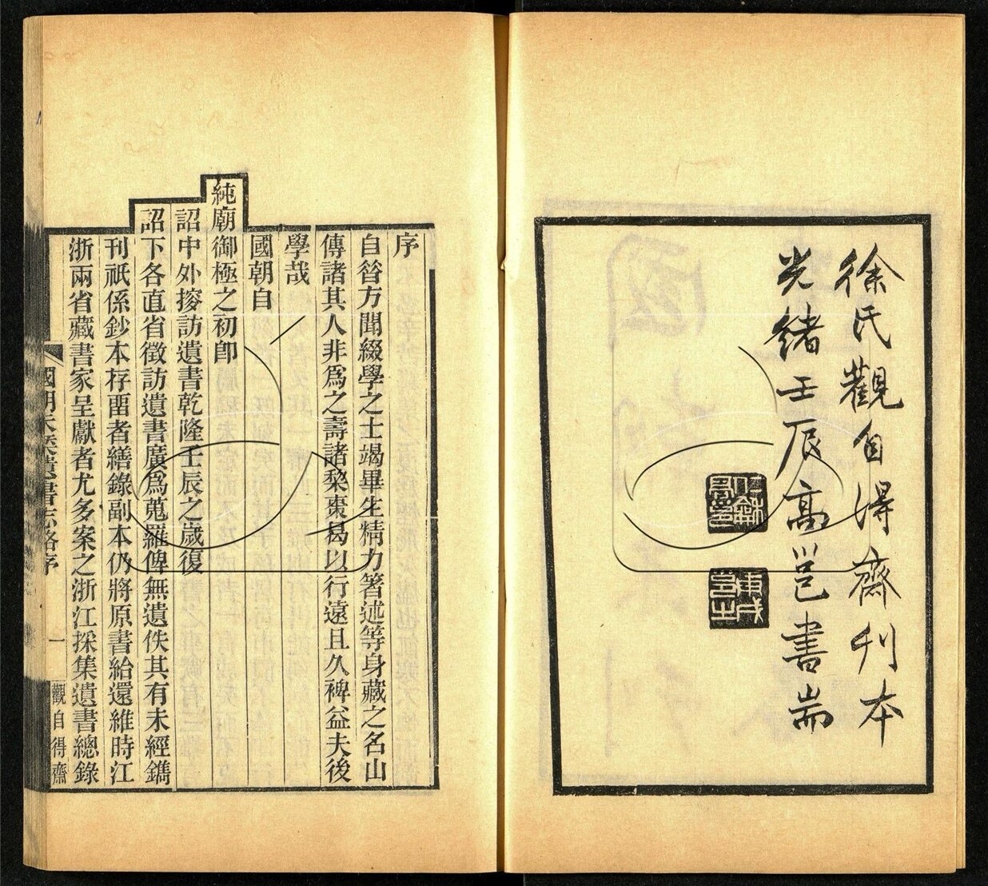 徐氏觀自得齋刊本
光緒壬辰高邕書耑
序
自昝方聞綴學之士竭畢生精力箸述等身藏之名山
傳諸其人非爲之壽諸棃棗曷以行遠且久裨益夫後
學哉
國朝自
純廟御極之初卽
詔中外搜訪遺書乾隆壬辰之歲復
詔下各直省徵訪遺書廣爲蒐羅俾無遺佚其有未經鐫
刊祇係鈔本存畱者繕錄副本仍將原書給還維時江
浙兩省藏書家呈獻者尤多案之浙江採集遺書總錄
國朝未栞遺書志略序
一
觀自得齋